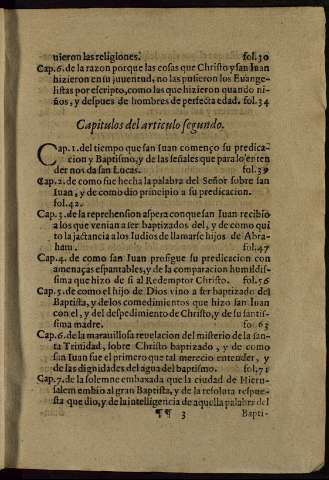 uieron las religiones. fol.30
Cap.6. de la razon porque las cosas que Christo y san Iuan
hizieron en su juuentud, no las pusieron los Euange-
listas por escripto, como las que hizieron quando ni-
ños, y despues de hombres de perfecta edad. fol.34
Capitulos del articulo segundo.
Cap.1. del tiempo que san Iuan començo su predica-
cion y Baptismo, y de las señales que para lo enten
der nos da san Lucas. fol.39
Cap.2. de como fue hecha la palabra del Señor sobre san
Iuan, y de como dio principio a su predicacion.
fol.42.
Cap.3. de la reprehension aspera con que san Iuan recibio
a los que venian a ser baptizados del, y de como qui
to la jactancia a los Iudios de llamarse hijos de Abra-
ham. fol.47
Cap.4. de como san Iuan prosigue su predicacion con
amenaças espantables, y de la comparacion humildiss-
sima que hizo de si al Redemptor Christo. fol.56
Cap.5. de como el hijo de Dios vino a ser baptizado del
Baptista, y de los comedimientos que hizo san Iuan
con el, y del despedimiento de Christo, y de su santis-
sima madre. fo.63
Cap.6. de la marauillosa reuelacion del misterio de la san-
ta Trinidad, sobre Christo baptizado, y de como
san Iuan fue el primero que tal merecio entender, y
de las dignidades del agua del baptismo. fol.71
Cap.7. de la solemne embaxada que la ciudad de Hieru-
salem embio al gran Baptista, y de la resoluta respue-
sta que dio, y de la intelligencia de aquella palabra del
¶¶ 3 Bapti-